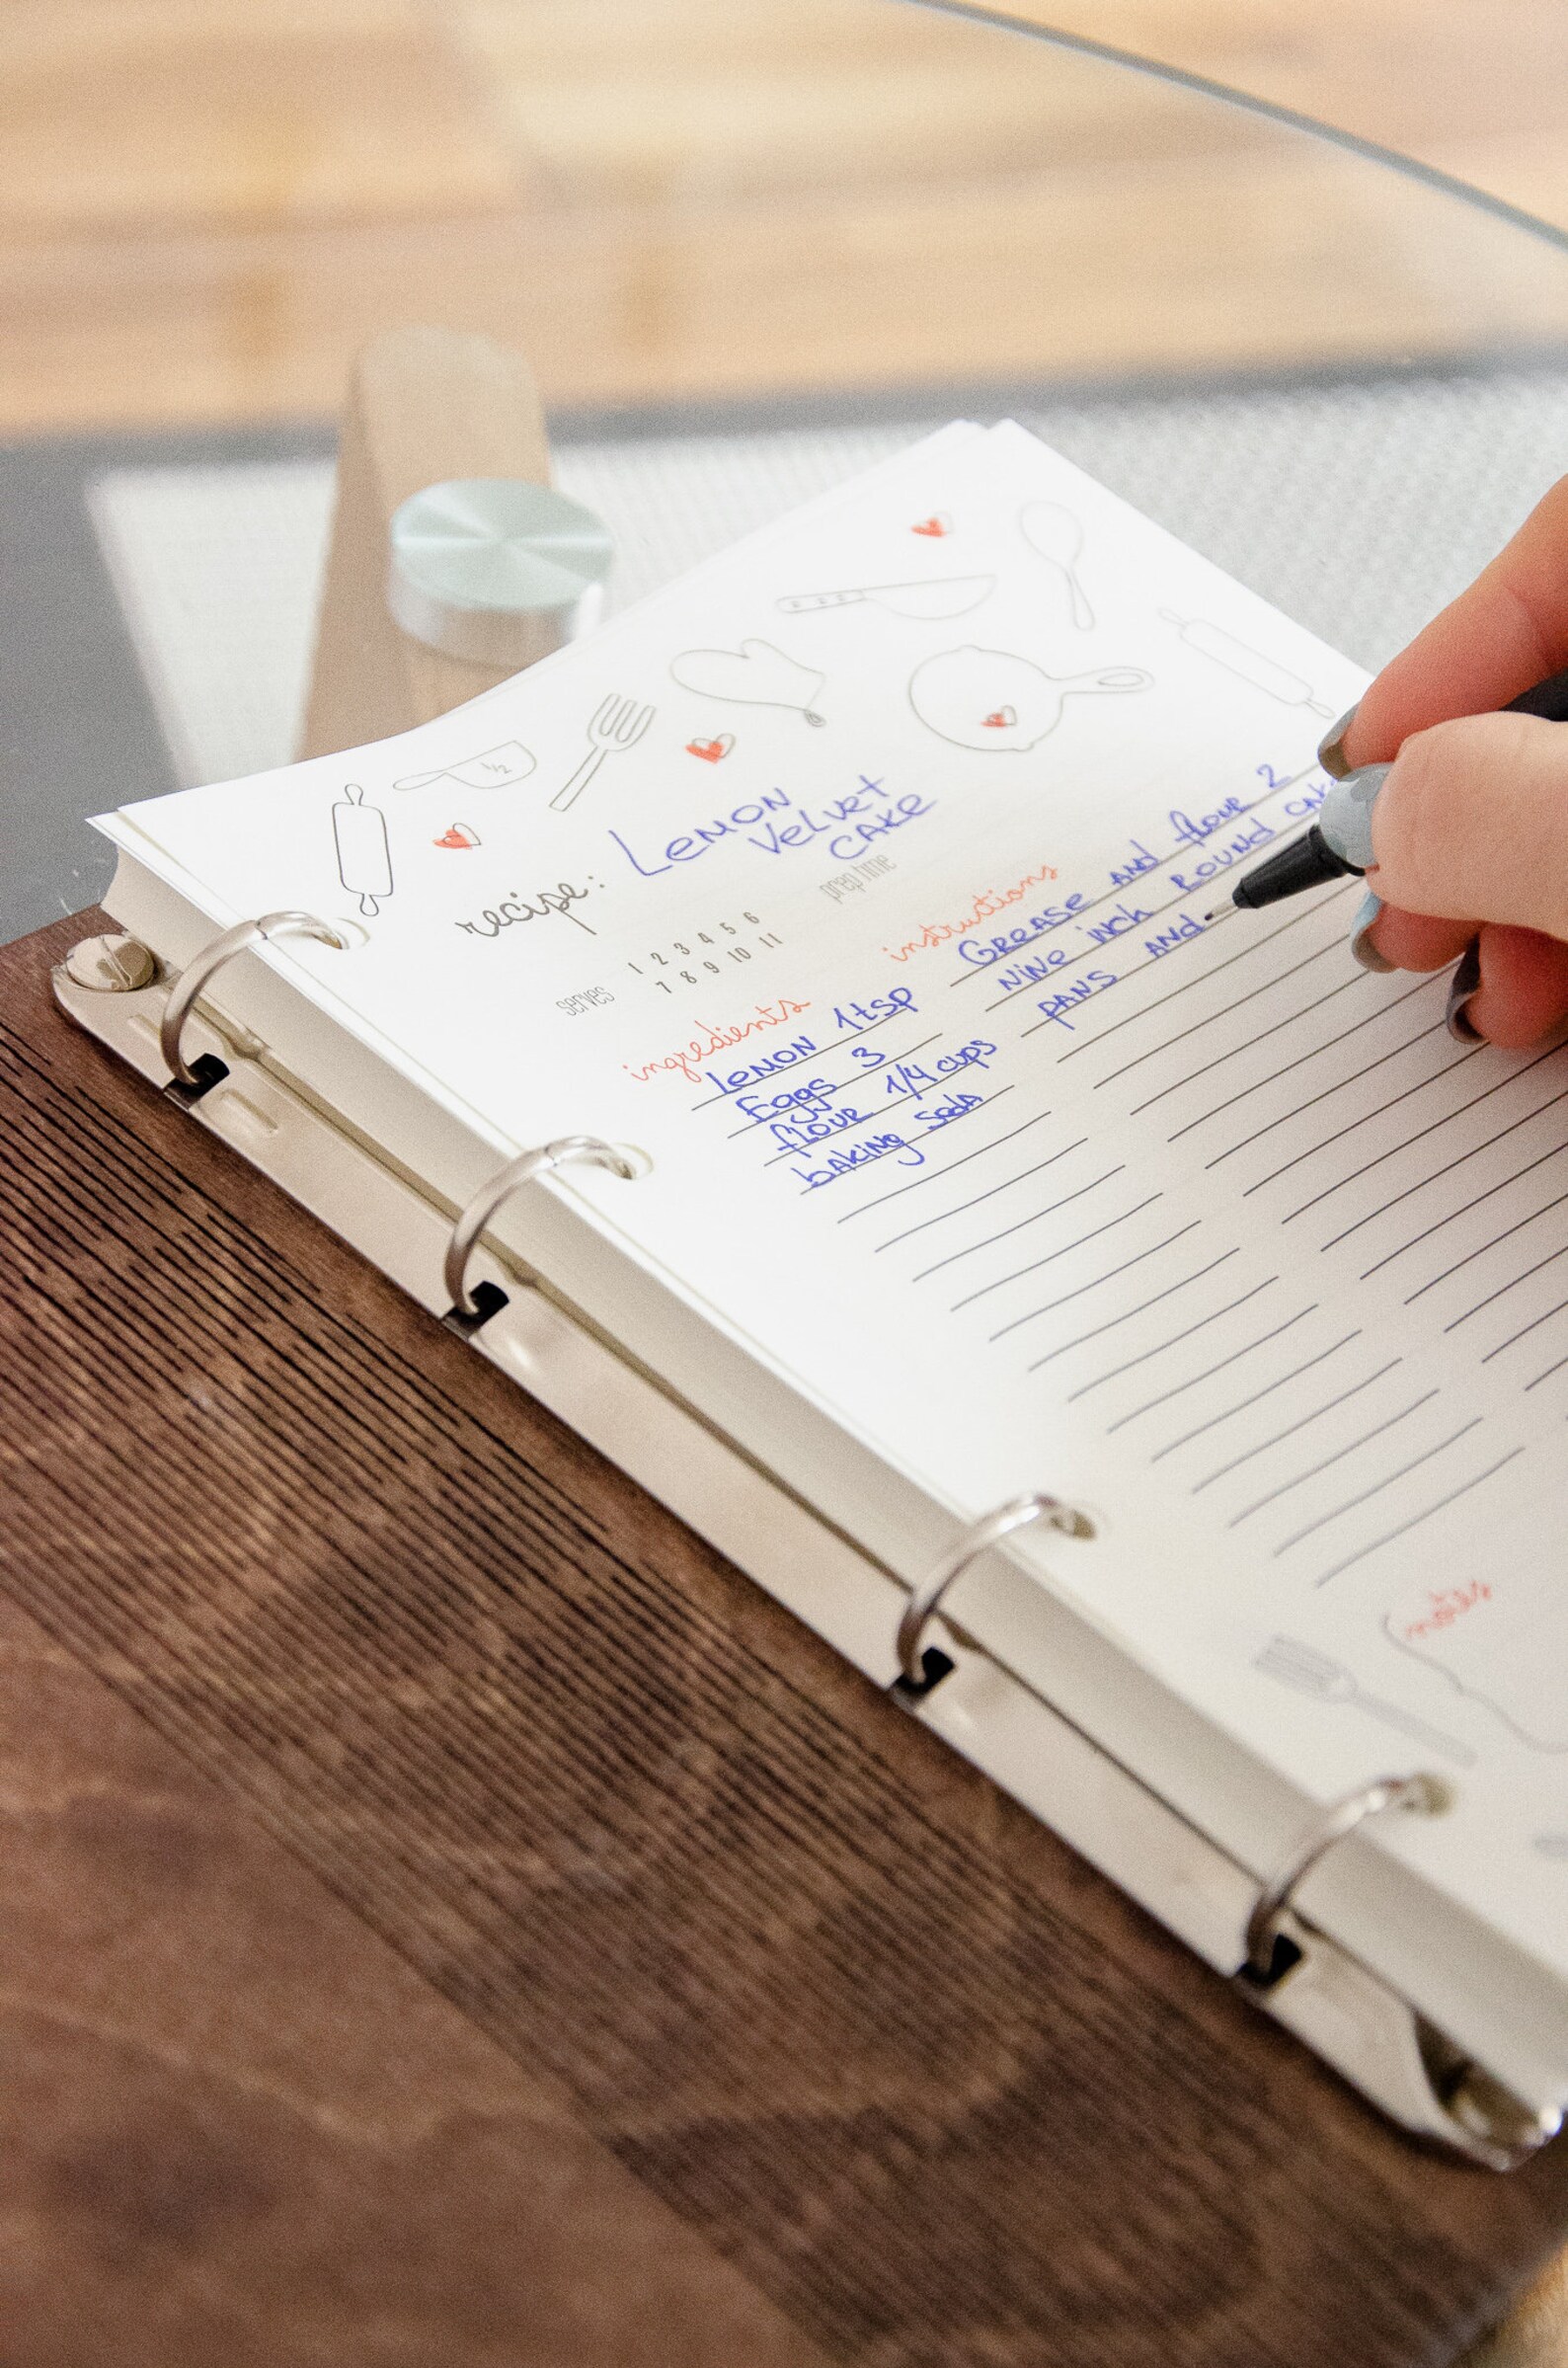 1/2
recipe: LEMON
Velvet
CAKE
serves 1 2 3 4 5 6
7 8 9 10 11
prep time
ingredients
LEMON 1tsp
Eggs 3
flour 1/4 cups
bAKING SodA
instructions
GREASE AND flour 2
NINE inch ROUND CAKE
PANS AND
notes